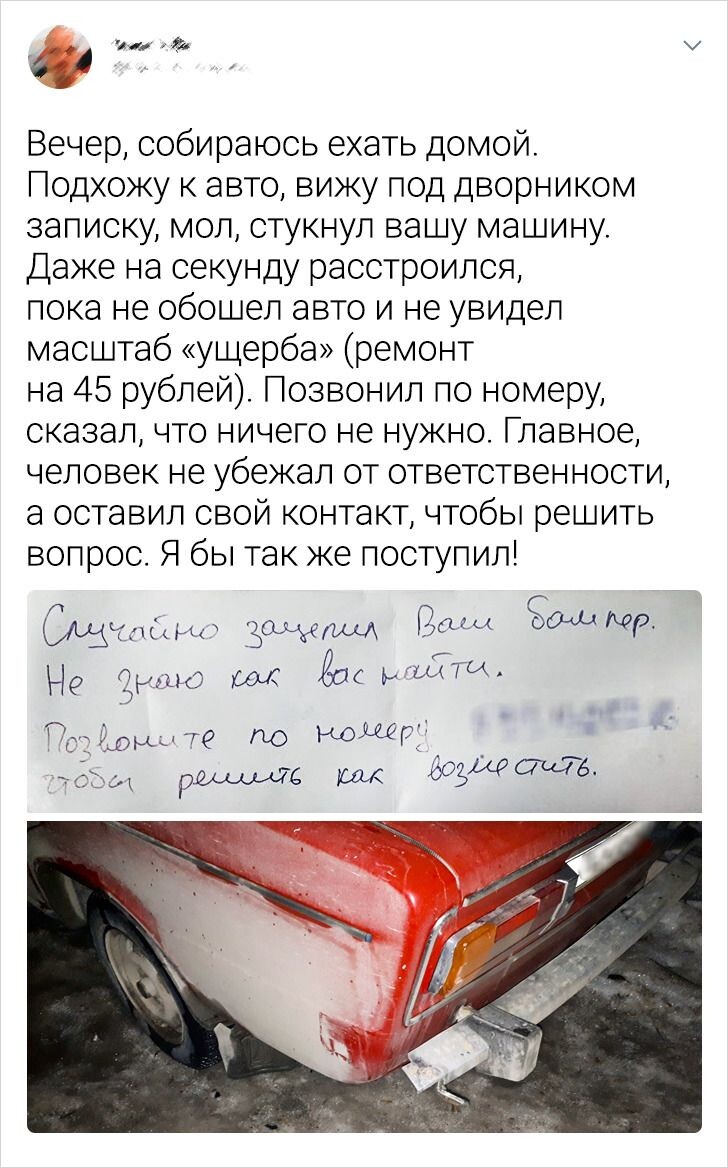 Вечер, собираюсь ехать домой.
Подхожу к авто, вижу под дворником
записку, мол, стукнул вашу машину.
Даже на секунду расстроился,
пока не обошел авто и не увидел
масштаб «ущерба» (ремонт
на 45 рублей). Позвонил по номеру,
сказал, что ничего не нужно. Главное,
человек не убежал от ответственности,
а оставил свой контакт, чтобы решить
вопрос. Я бы так же поступил!
Случайно зацепил Ваш бампер.
Не знаю как вас найти.
Позвоните по номеру
чтобы решить как возместить.